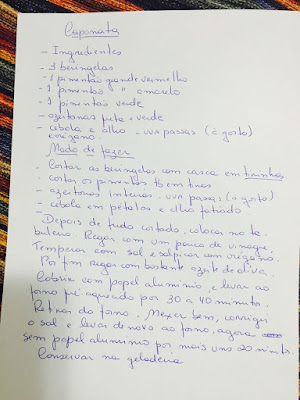 Caponata
- Ingredientes
- 3 beringelas
- 1 pimentão grande vermelho
- 1 pimentão " amarelo
- 1 pimentão verde
- azeitonas preta e verde
- cebola e alho - uva passas (à gosto)
e orégano.
Modo de fazer
- Cortar as beringelas com casca em tirinhas
- cortar os pimentões tb em tiras
- azeitonas inteiras - uva passas (a gosto)
- cebola em pétalas e alho fatiado
Depois de tudo cortado, colocar no ta-
buleiro. Regar com um pouco de vinagre.
Temperar com sal e salpicar com orégano.
Por fim regar com bastante azeite de oliva.
Cobrir com papel aluminio, e levar ao
forno pré-aquecido por 30 a 40 minutos.
Retirar do forno. Mexer bem, corrigir
o sal e levar de novo ao forno, agora
sem papel aluminio por mais uns 20 minutos.
Conservar na geladeira.